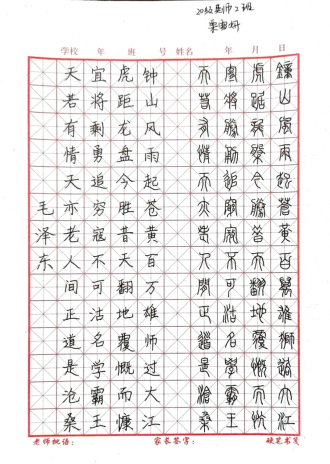 20级美师2班
学校 年 班 号 姓名 年 月 日
鐘山風雨起蒼黃百萬雄師過大江
虎踞龍盤今勝昔天翻地覆慨而慷
宜將剩勇追窮寇不可沽名學霸王
天若有情天亦老人間正道是滄桑
钟山风雨起苍黄百万雄师过大江
虎距龙盘今胜昔天翻地覆慨而慷
宜将剩勇追穷寇不可沽名学霸王
天若有情天亦老人间正道是沧桑
毛泽东
老师批语: 家长签字: 硬笔书写